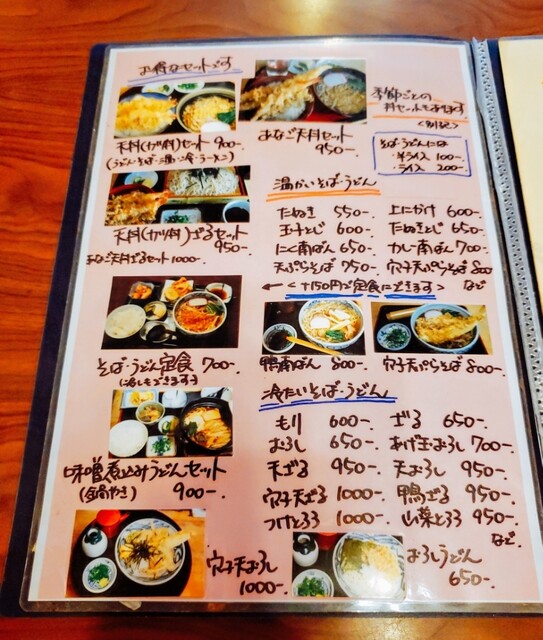 お得なセットです
天丼(カツ丼)セット 900-.
(うどん・そば・温・冷・ラーメン)
あなご天丼セット
950-.
季節ごとの
丼セットもあります
<別記>
そば・うどんには
・半ライス 100-.
・ライス 200-.
天丼(カツ丼)ざるセット
950-.
あなご天丼ざるセット 1000-.
温かいそば・うどん
たぬき 550-. 上にかけ 600-.
玉子とじ 600-. たぬきとじ 650-.
にく南ばん 650-. カレー南ばん 700-.
天ぷらそば 750-. 穴子天ぷらそば 800
← <+150円で定食にできます> など
そば・うどん定食 700-.
(冷しもできます)
鴨南ばん 800-.
穴子天ぷらそば 800-.
冷たいそば・うどん
もり 600-. ざる 650-.
おろし 650-. あげ玉おろし 700-.
天ざる 950-. 天おろし 950-.
穴子天ざる 1000-. 鴨ざる 950-.
つけとろろ 1000-. 山菜とろろ 950-.
など
味噌煮込みうどんセット
(鍋やき) 900-.
穴子天おろし
1000-.
おろしうどん
650-.